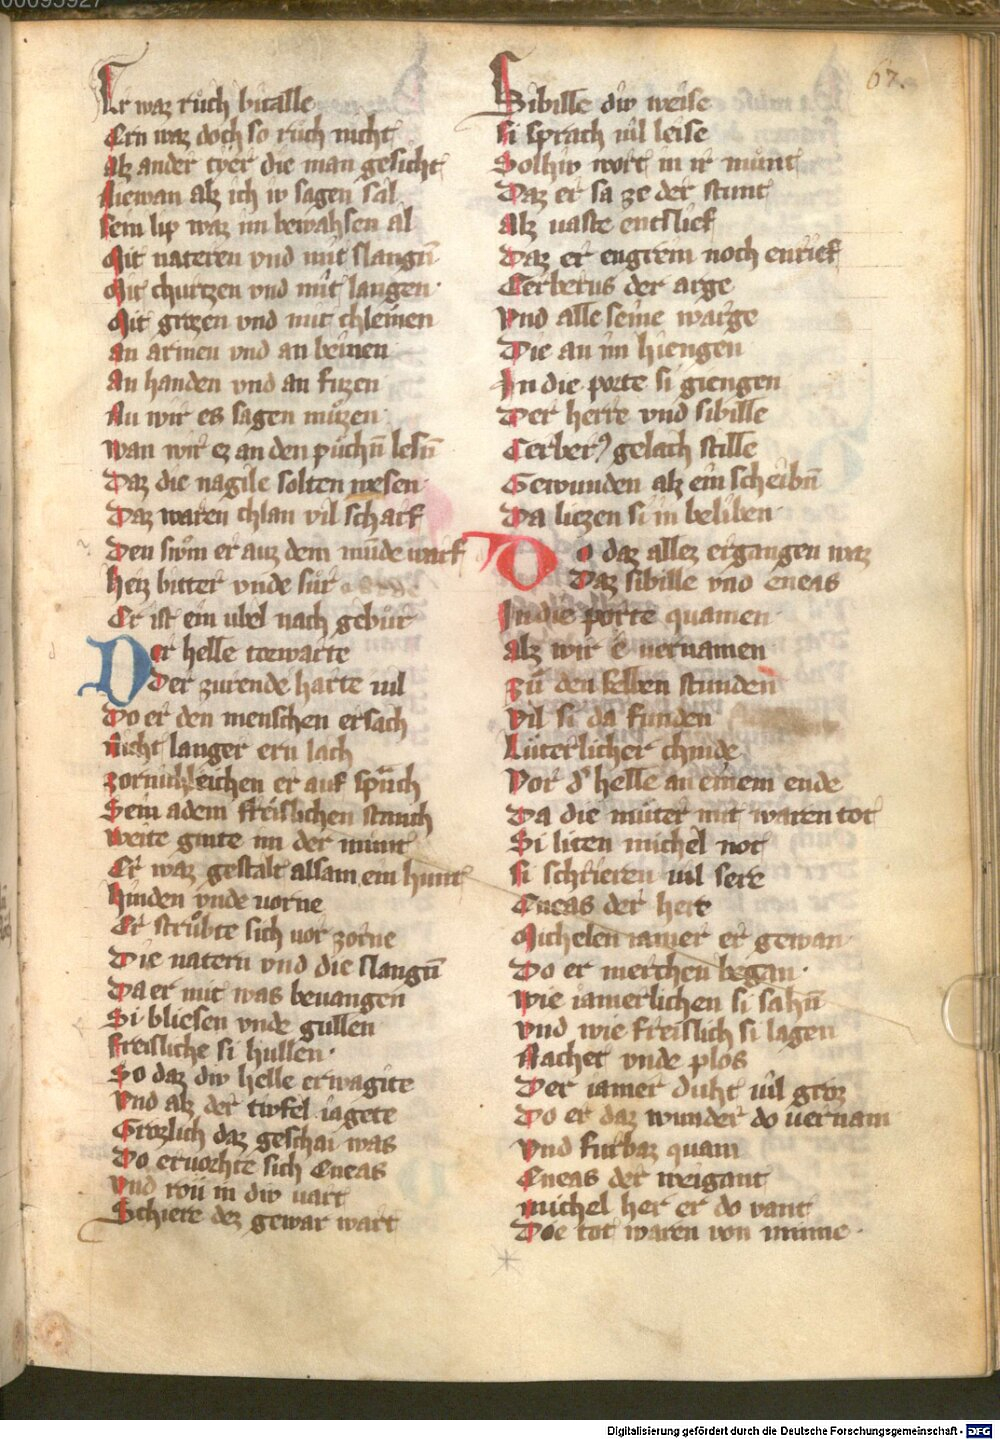 00095927
67.
Er waz růch bitalle
Ern waz doch so růch nicht
Alz ander tyer die man gesicht
Niewan alz ich iv sagen sal
Sein lip waz im bewahsen al
Mit nateren vnd mit slangn̄
Mit churtzen vnd mit langen·
Mit grozen vnd mit chleinen
an armen vnd an beinen
An handen vnd an fuzen
Nu wir es sagen můzen
wan wir ez an den půchn̄ lesn̄
Daz die nagile solten wesen·
Daz waren chlan vil scharf
Den swm er auz dem mūde warf
heiz bitter vnde sůr
Er ist ein ubel nach gebůr
Der helle torwarte
Der zurende harte uil
Do er den menschen ersach
Nicht langer ern lach
zornichleichen er auf sprach
Sein adem freislichen stanch
weite ginte im der munt
Er waz gestalt allsam ein hunt
hinden vnde uorne
Er strůbte sich vor zorne
Die natern vnd die slangn̄
Da er mit was beuangen
Si bliesen vnde gullen
Freisliche si hullen·
So daz div helle erwagite
Vnd alz der tivfel iagete
Grozlich daz geschai was
Do eruorhte sich Eneas
vnd rou in div uart
Schiere dez gewar wart
Sibille div weise
Si sprach uil leise
Solhiv wort in ir munt
Daz er sa ze der stunt
Alz uaste entslief
Daz er engrein noch enrief
Cerberus der arge
Vnd alle seine warge
Die an im hiengen
In die porte si giengen
Der herre vnd sibille
Cerber⁹ gelach stille
Gewunden alz ein scheibn̄
Da liezen si in beliben
Do daz allez ergangen waz
Daz sibille vnd eneas
In die porte quamen
Alz wir e uernamen
zů den selben stunden
Vil si da funden
Lůterlicher chinde
Vor d͛ helle an einem ende
Da die můter mit waren tot
Si liten michel not
Si schrieren uil sere
Eneas der here
Michelen iamer er gewan
Do er merchen began·
wie iamerlichen si sahn̄
vnd wie freislich si lagen
Nachet vnde plos
Der iamer duht uil groz
Do er daz wunder do uernam
Vnd furbaz quam
Eneas der weigant
michel her er do vant
Die tot waren von minne·
Digitalisierung gefördert durch die Deutsche Forschungsgemeinschaft - DFG